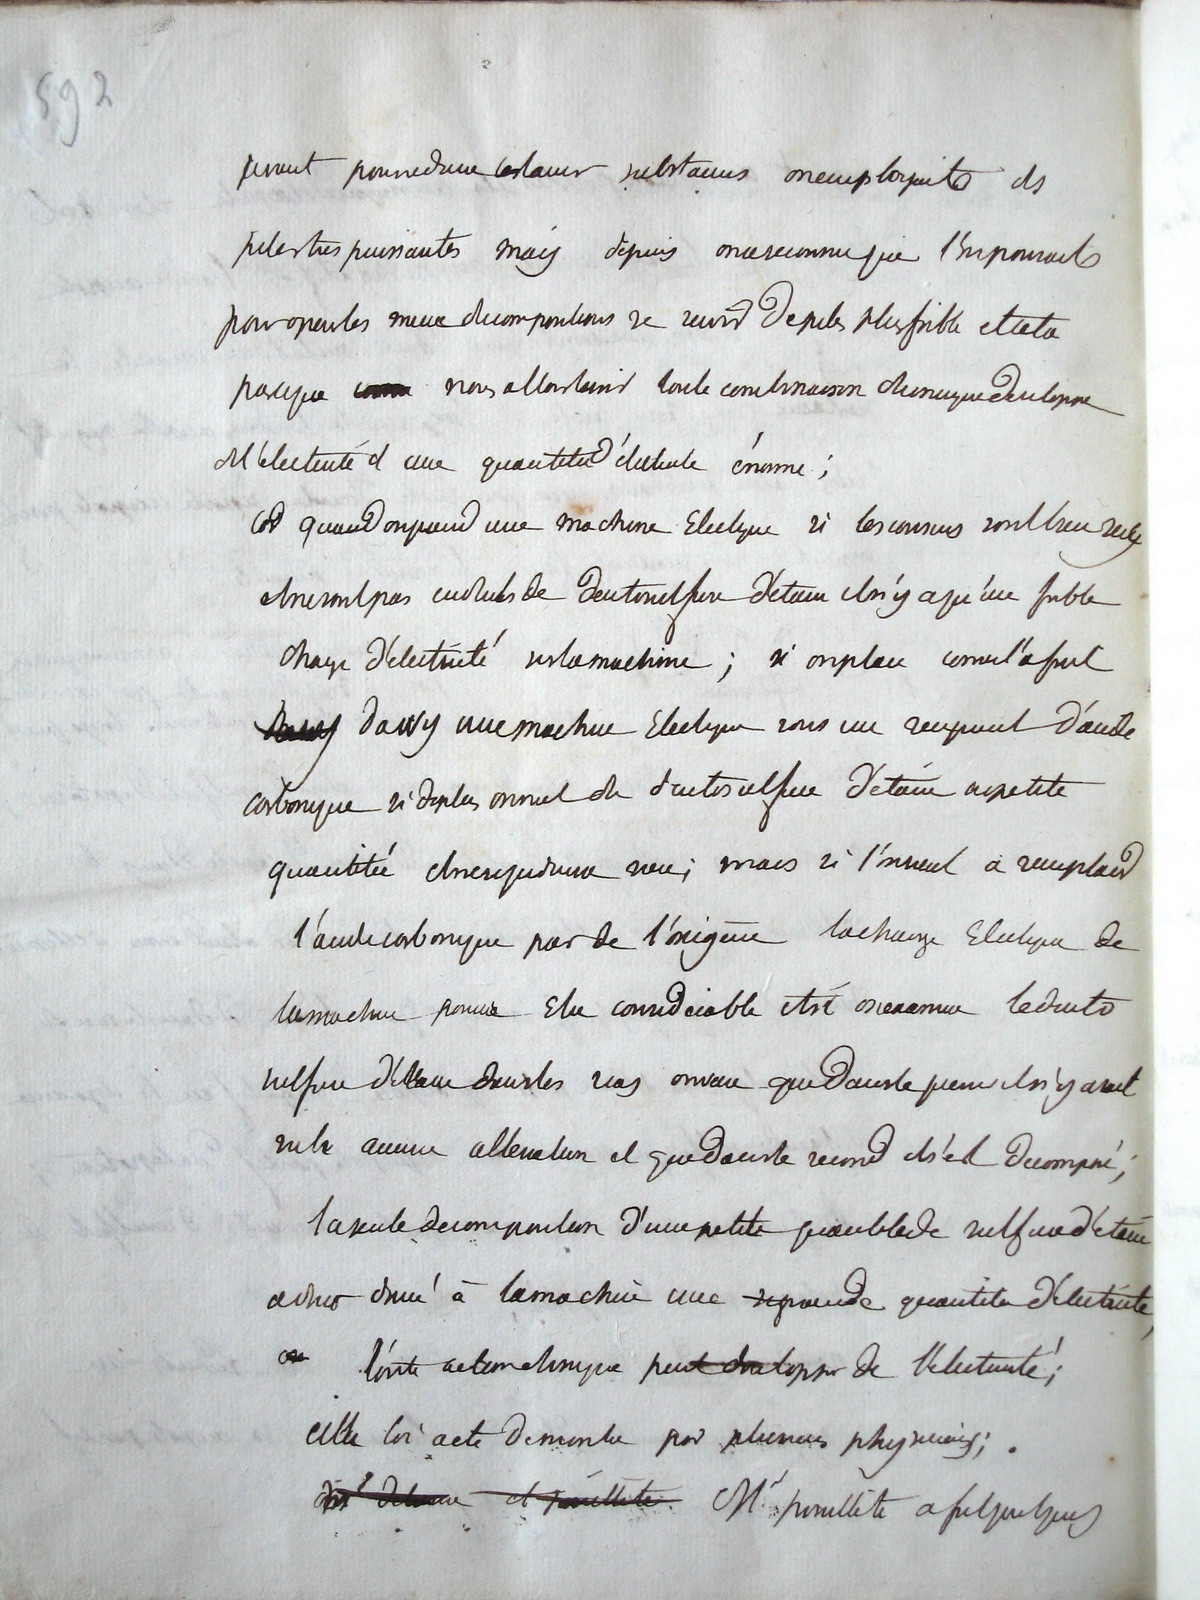 592
pour réduire substances on employait des
piles très puissantes mais depuis on a reconnu que l'on pouvait
pour opérer les meme decompositions se servir de piles plus faible et cela
parceque nous allons toute combinaison chimique developpe
de l'électricité et une quantité d'électricité énorme;
quand on prend une machine Electrique si les coussins sont bien secs
et ne sont pas enduits de deutosulfure d'étain il n'y a qu'une faible
charge d'électricité sur la machine; si on place comme l'a fait
dawy une machine Electrique sous un recipient d'acide
carbonique si de plus on met du deutosulfure d'étain en petite
quantitée il ne se produira rien; mais si l'on vient a remplacer
l'acide carbonique par de l'oxigène la charge Electrique de
la machine pourra Etre considérable et si on examine le deuto
sulfure d'étain dans les cas on voit que dans le premier il n'y avait
subi aucune alteration et que dans le second il s'est decomposé;
la seule decomposition d'une petite quantité de sulfure d'étain
a donc donné à la machine une grande quantité d'électricité,
toute action chimique peut developper de l'électricité;
cette loi a eté demontré par plusieurs physiciens;
et pouillete Mr pouillete a fait quelques